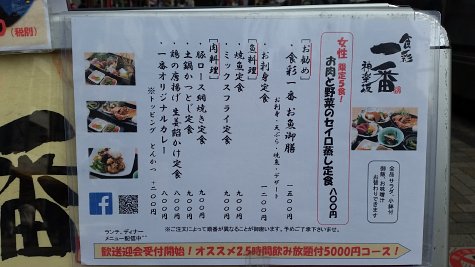 食彩
一番
神楽坂
全品 サラダ、小鉢付
御飯、お味噌汁
お替わりできます
女性 限定5食!
お肉と野菜のセイロ蒸し定食 八〇〇円
【お勧め】
・食彩一番 お魚御膳 一五〇〇円
お刺身・天ぷら・焼魚・デザート
【魚料理】
・お刺身定食 一二〇〇円
・焼魚定食 九〇〇円
・ミックスフライ定食 九〇〇円
【肉料理】
・豚ロース網焼き定食 九〇〇円
・土鍋かつとじ定食 九〇〇円
・鶏の唐揚げ 生姜餡かけ定食 八〇〇円
・一番オリジナルカレー 八〇〇円
※トッピング とんかつ 一二〇〇円
ランチ、ディナー
メニュー配信中
※ご注文によって順番が異なることが御座います。予めご了承下さいませ。
歓送迎会受付開始!オススメ2.5時間飲み放題付5000円コース!
(税別)
一番